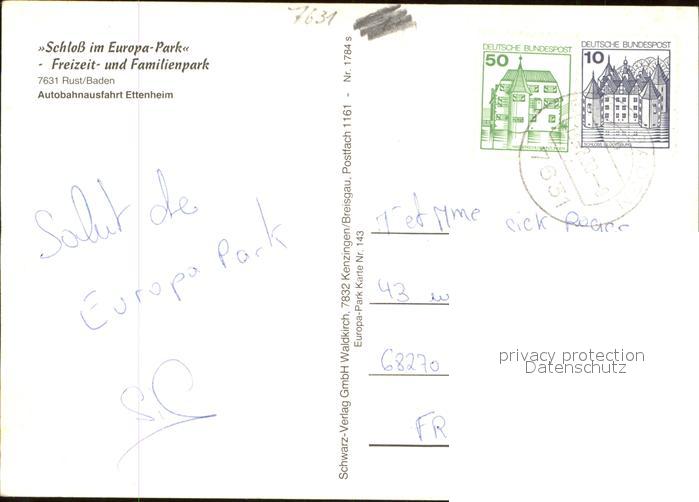 7631
»Schloß im Europa-Park«
- Freizeit- und Familienpark
7631 Rust/Baden
Autobahnausfahrt Ettenheim
Salut de
Europa Park
Schwarz-Verlag GmbH Waldkirch, 7832 Kenzingen/Breisgau, Postfach 1161 - Nr. 1784 s
Europa-Park Karte Nr. 143
DEUTSCHE BUNDESPOST
50
DEUTSCHE BUNDESPOST
10
SCHLOSS GLÜCKSBURG
7631
M et Mme
43
68270
FR
privacy protection
Datenschutz